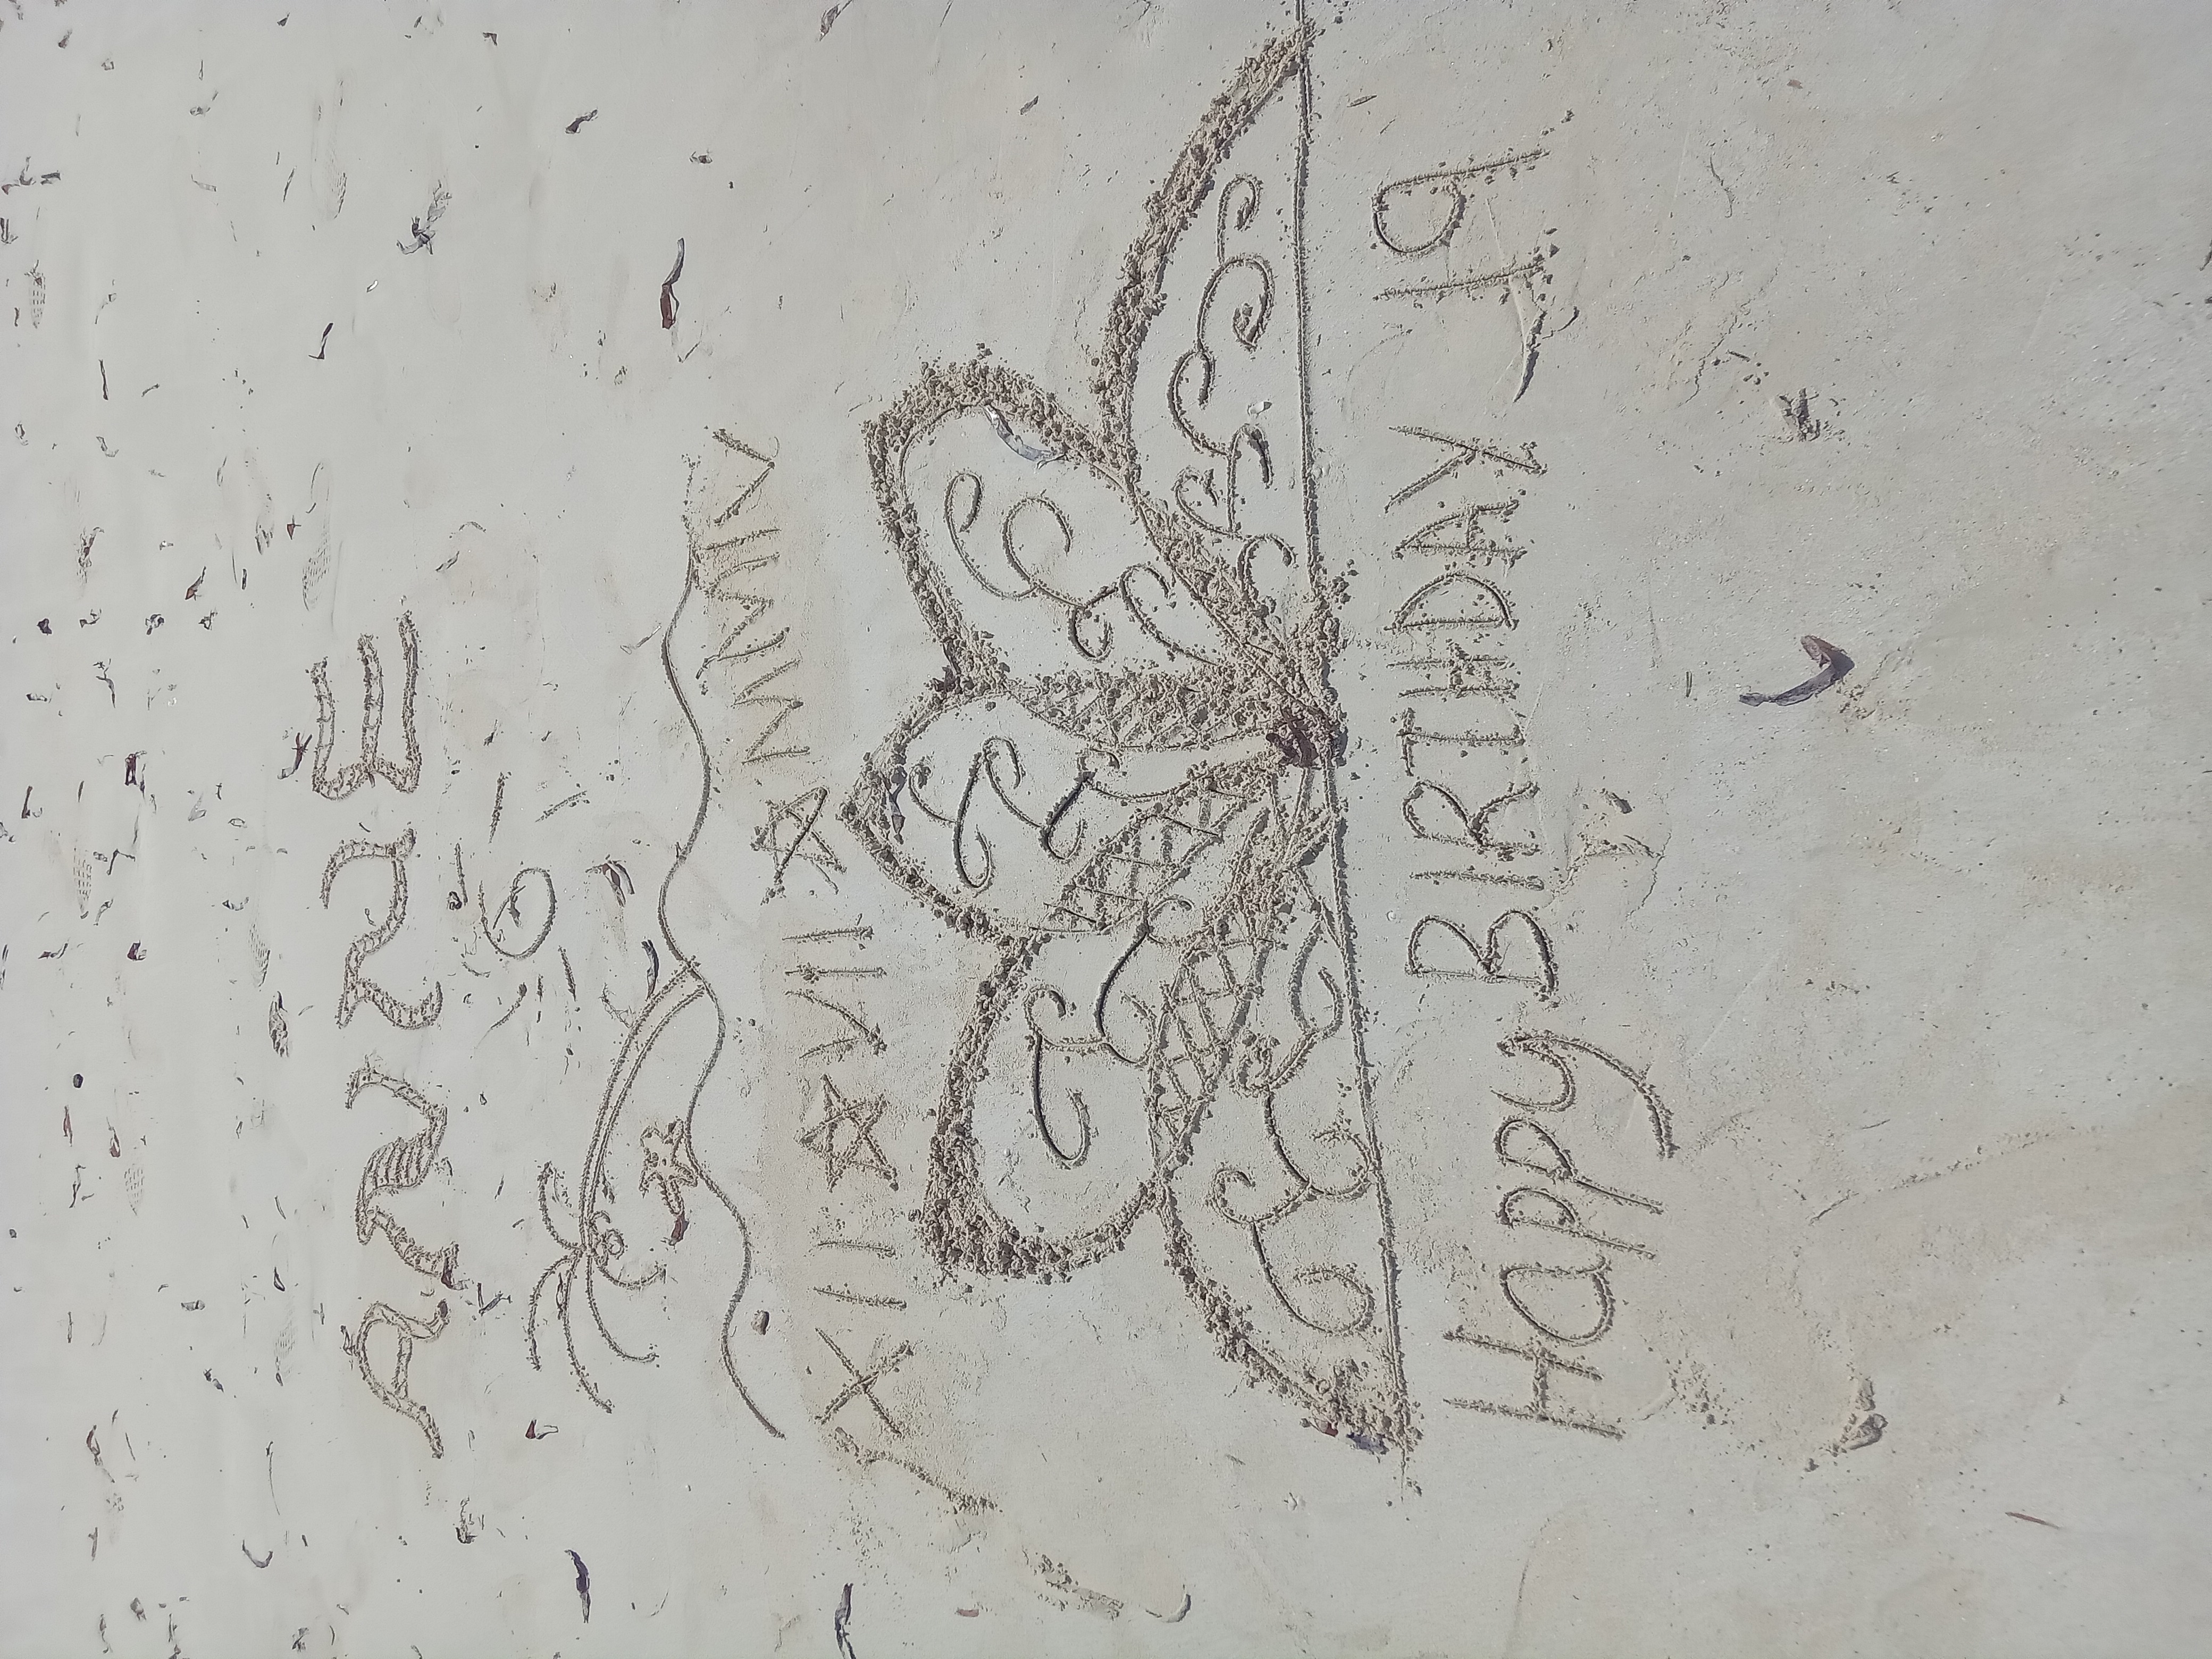 ANNE
XII ☆ VII ☆ MMIV
Happy BIRTHDAY 19